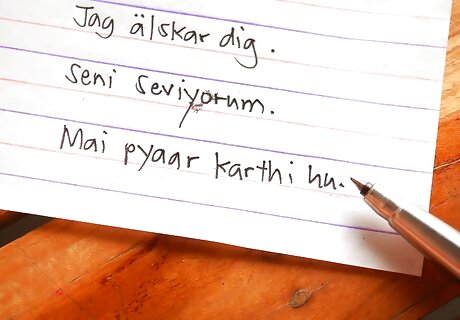 Jag älskar dig.
Seni seviyorum.
Mai pyaar karthi hu.